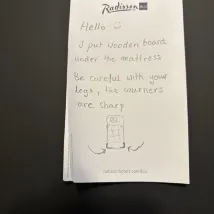 Radisson BLU
Hello ☺
I put wooden board
under the mattress
Be careful with your
legs, the courners
are sharp